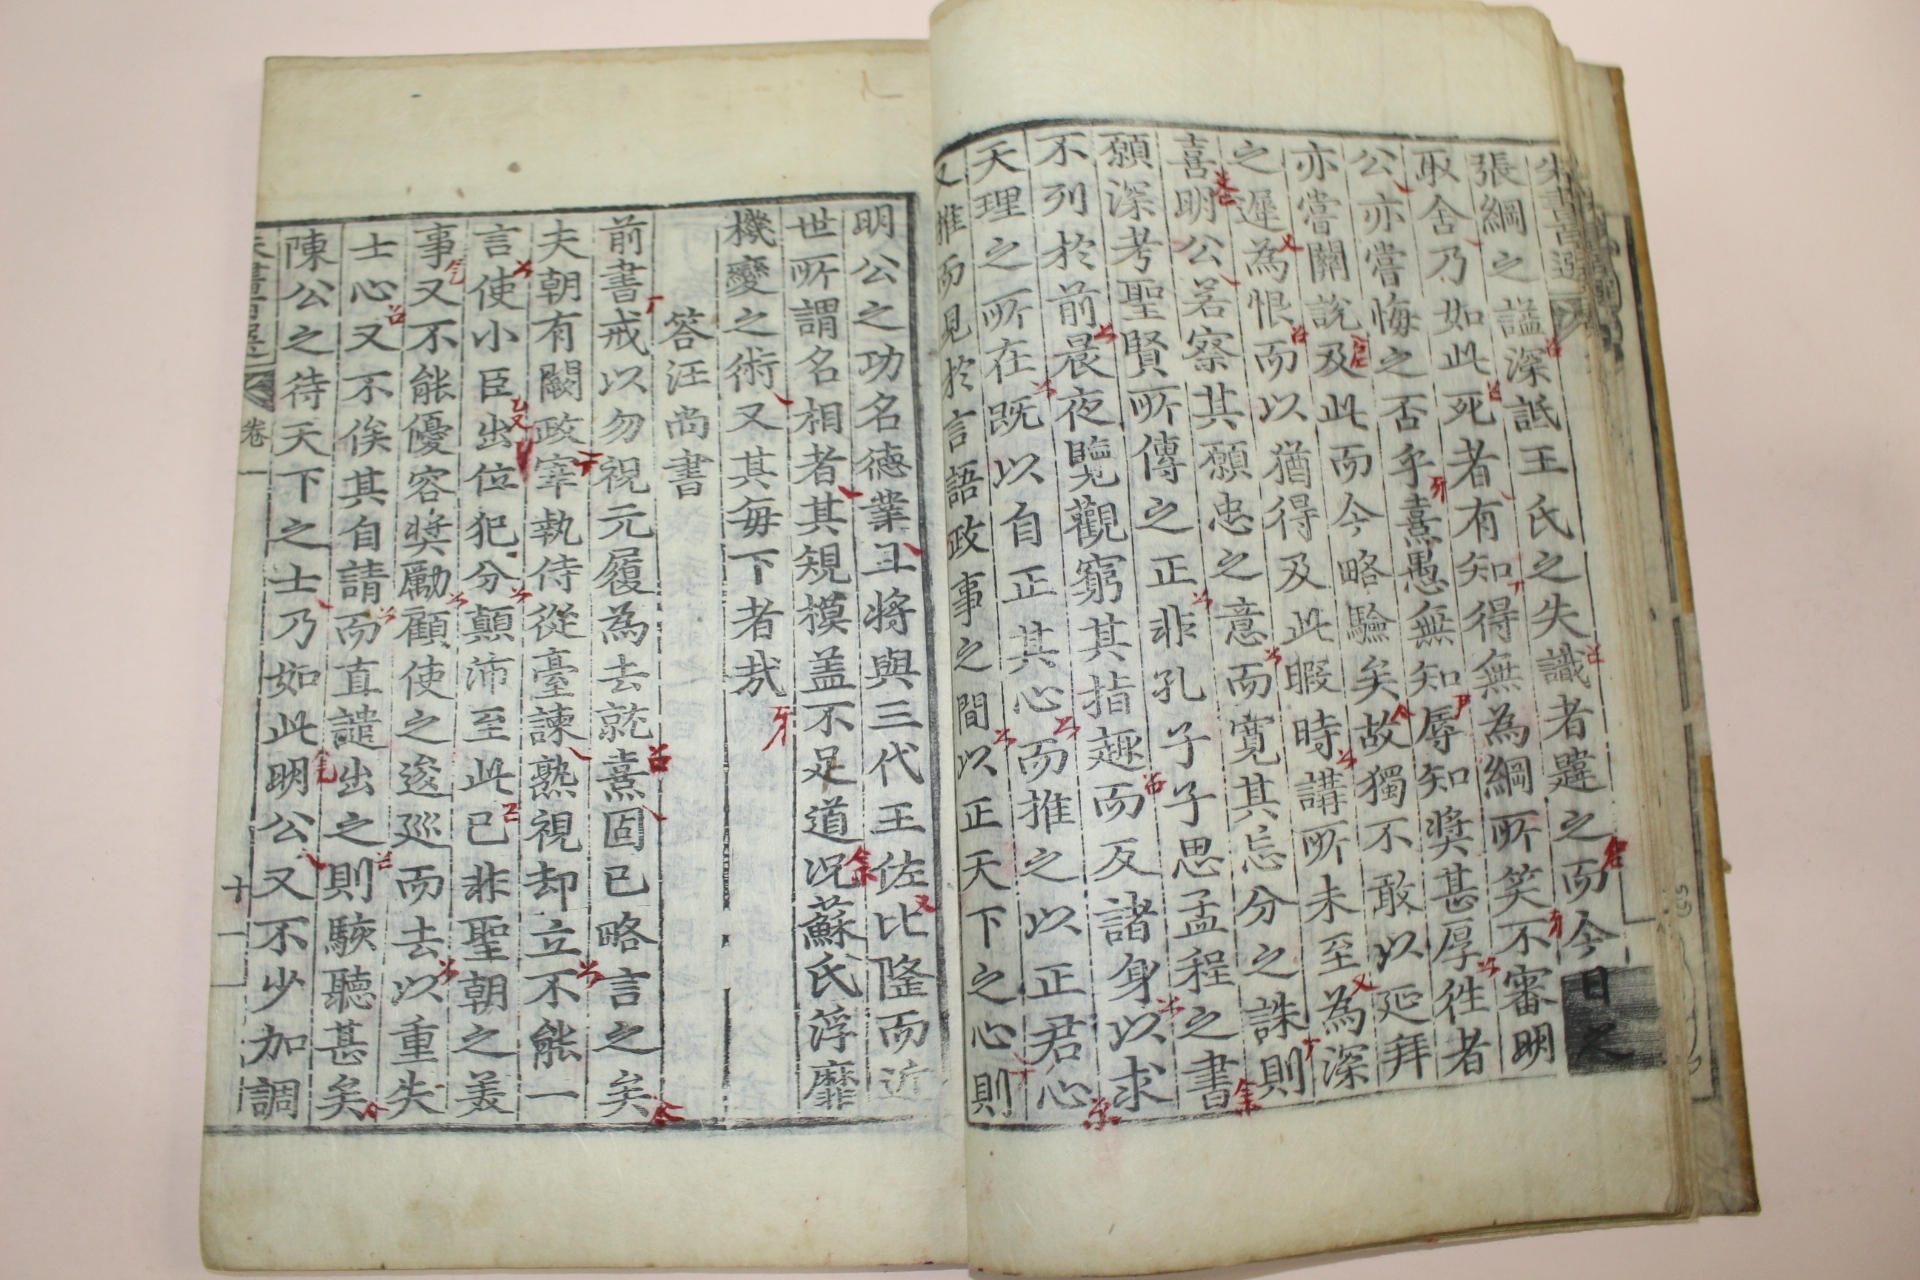 張綱之謚深詆王氏之失識者韙之而今日之
取舍乃如此死者有知得無為綱所笑不審明
公亦嘗悔之否乎熹愚無知辱知獎甚厚徃者
亦嘗關說及此而今略驗矣故獨不敢以延拜
之遲為恨而以猶得及此暇時講所未至為深
喜明公若察其願忠之意而寬其忘分之誅則
願深考聖賢所傳之正非孔子子思孟程之書
不列於前晨夜覽觀窮其指趣而反諸身以求
天理之所在既以自正其心而推之以正君心
又推而見於言語政事之間以正天下之心則
明公之功名德業且將與三代王佐比隆而近
世所謂名相者其規摸盖不足道況蘇氏浮靡
機變之術又其每下者哉
答汪尚書
前書戒以勿視元履為去就熹固已略言之矣
夫朝有闕政宰執侍從臺諫熟視却立不能一
言使小臣出位犯分顛沛至此已非聖朝之美
事又不能優容獎勵顧使之逡廵而去以重失
士心又不俟其自請而直譴出之則駭聽甚矣
陳公之待天下之士乃如此明公又不少加調
朱書百選 卷一 十一